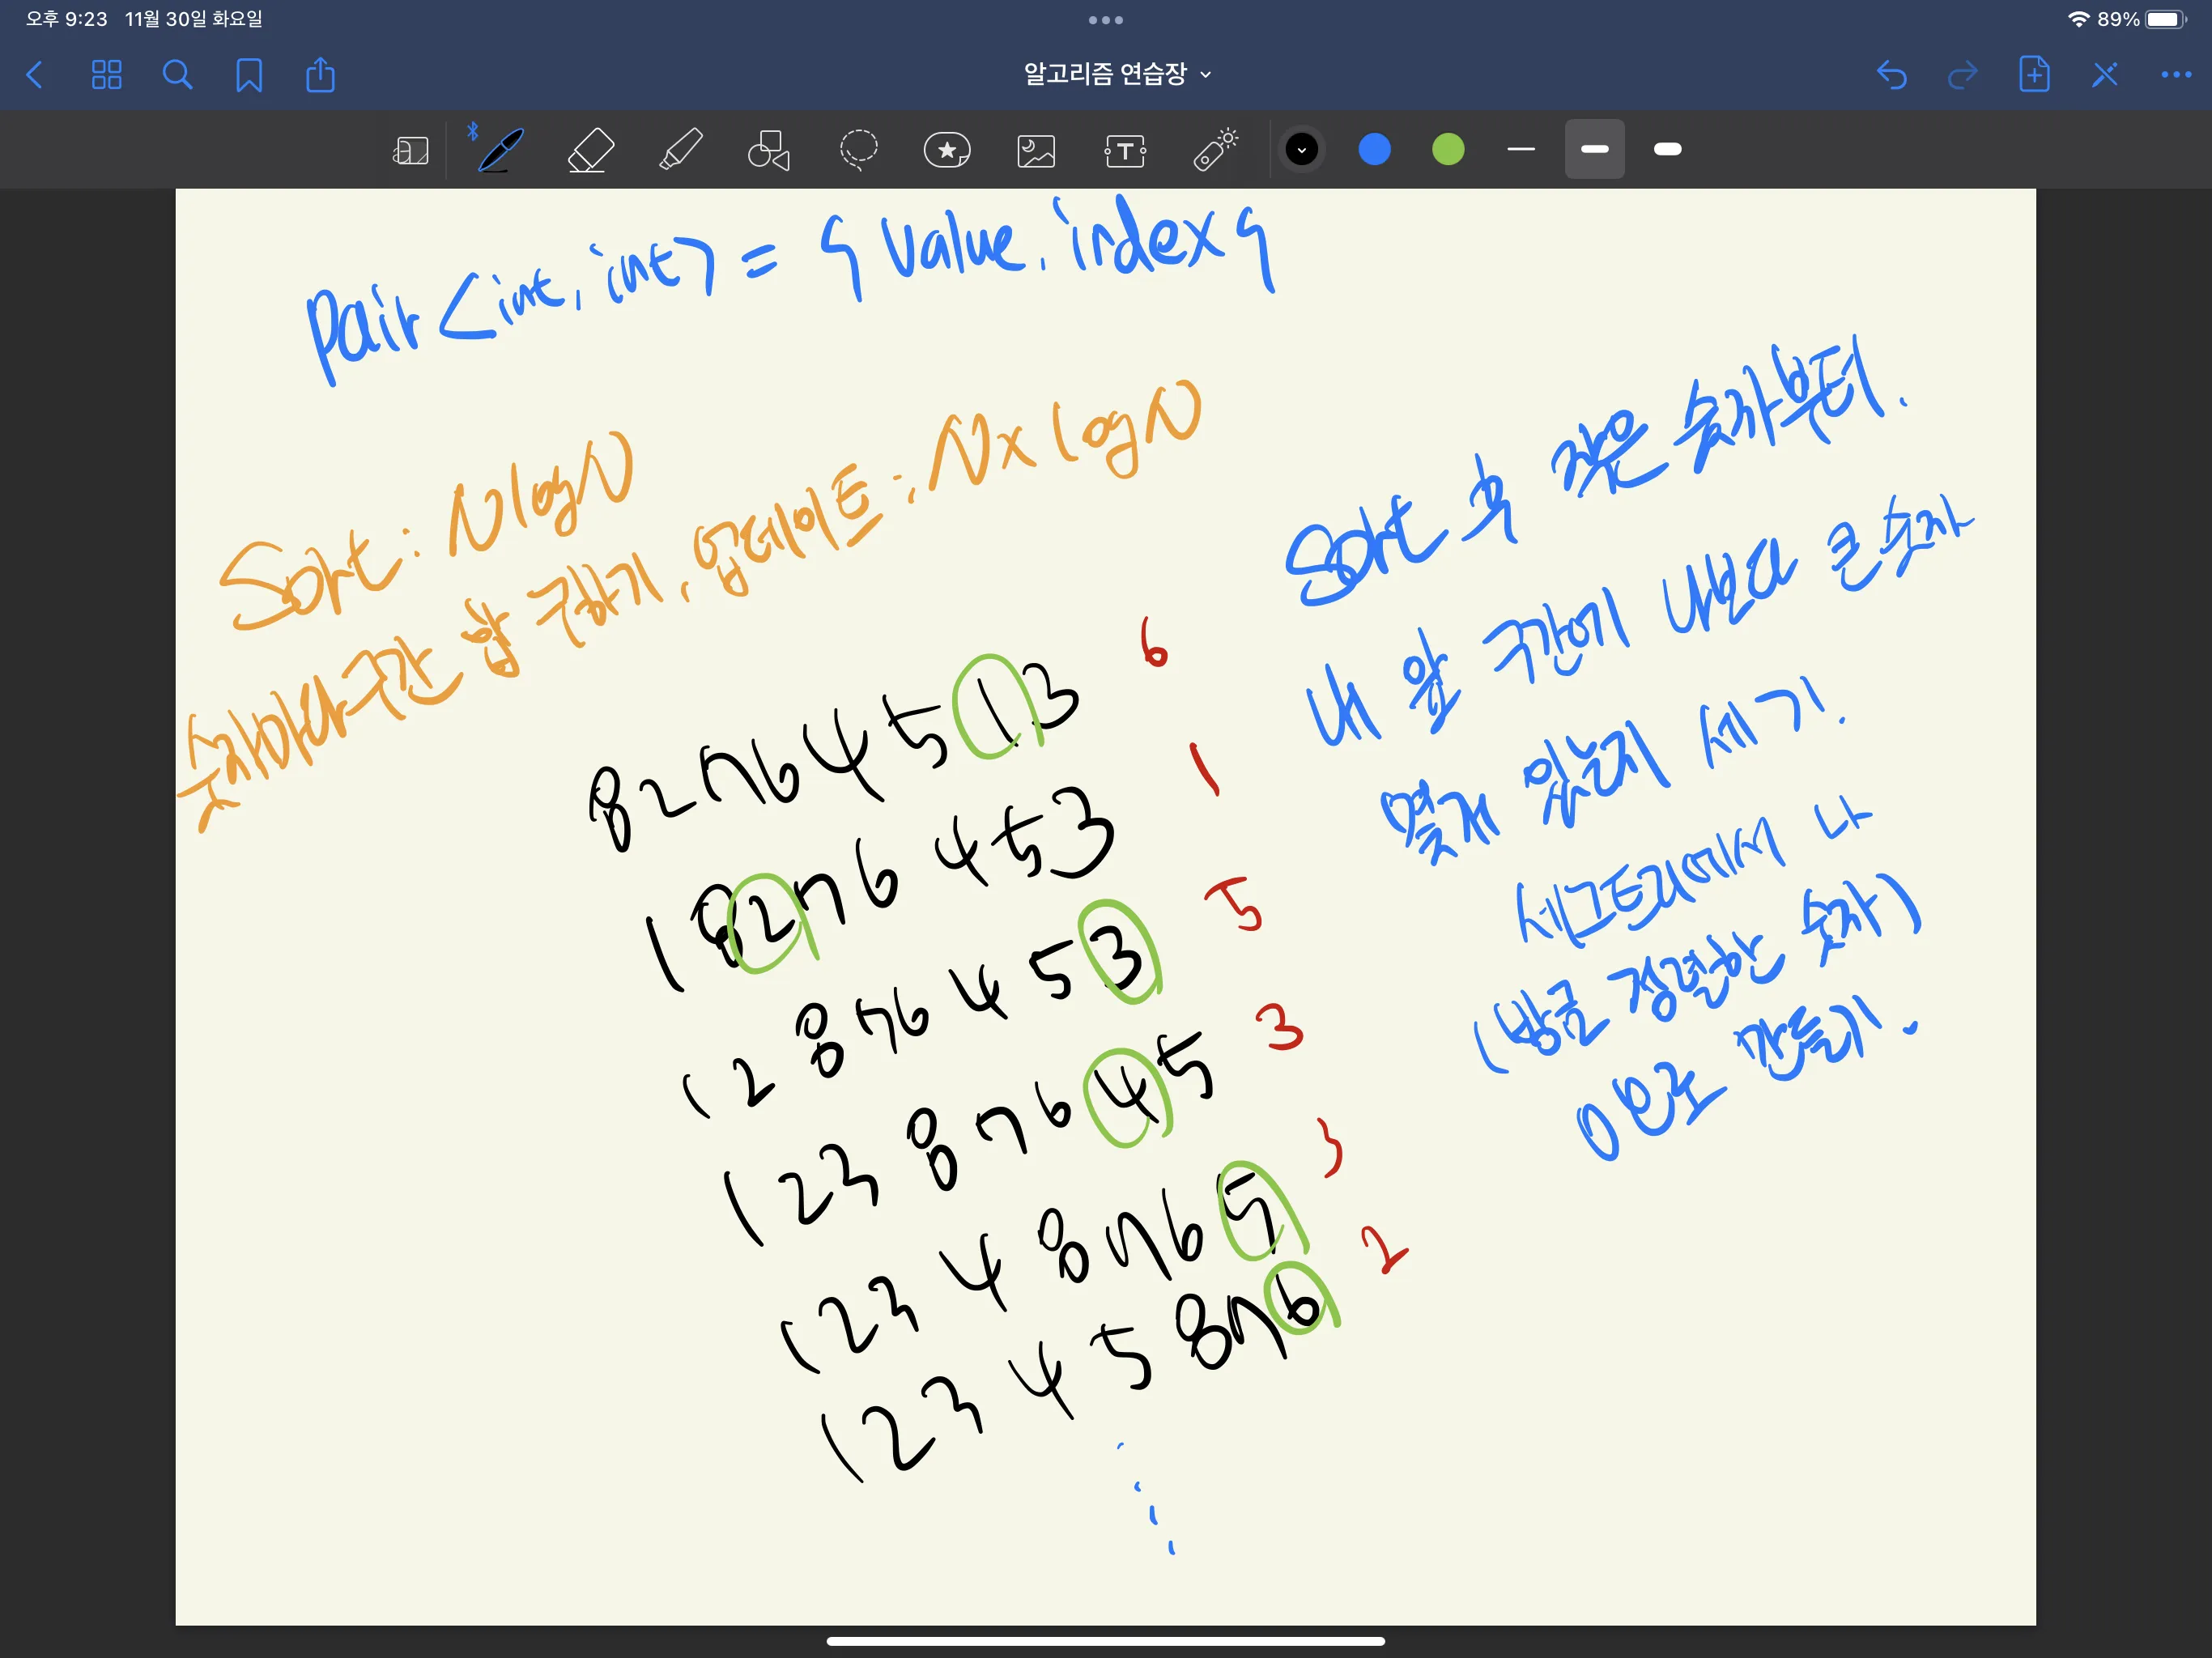 오후 9:23 11월 30일 화요일
89%
알고리즘 연습장
pair<int, int> = { value, index }
Sort : NlogN
순서대로 구간 합 구하기, 업데이트 : N x logN
8 2 7 6 4 5 1 3 6
1 8 2 7 6 4 5 3 1
1 2 8 7 6 4 5 3 5
1 2 3 8 7 6 4 5 3
1 2 3 4 8 7 6 5 3
1 2 3 4 5 8 7 6 2
Sort 후 작은 숫자부터.
내 왼 구간에 나보다 큰 숫자
몇개 있는지 세기.
세그트리에서 나
(방금 정렬한 숫자)
0으로 만들기.